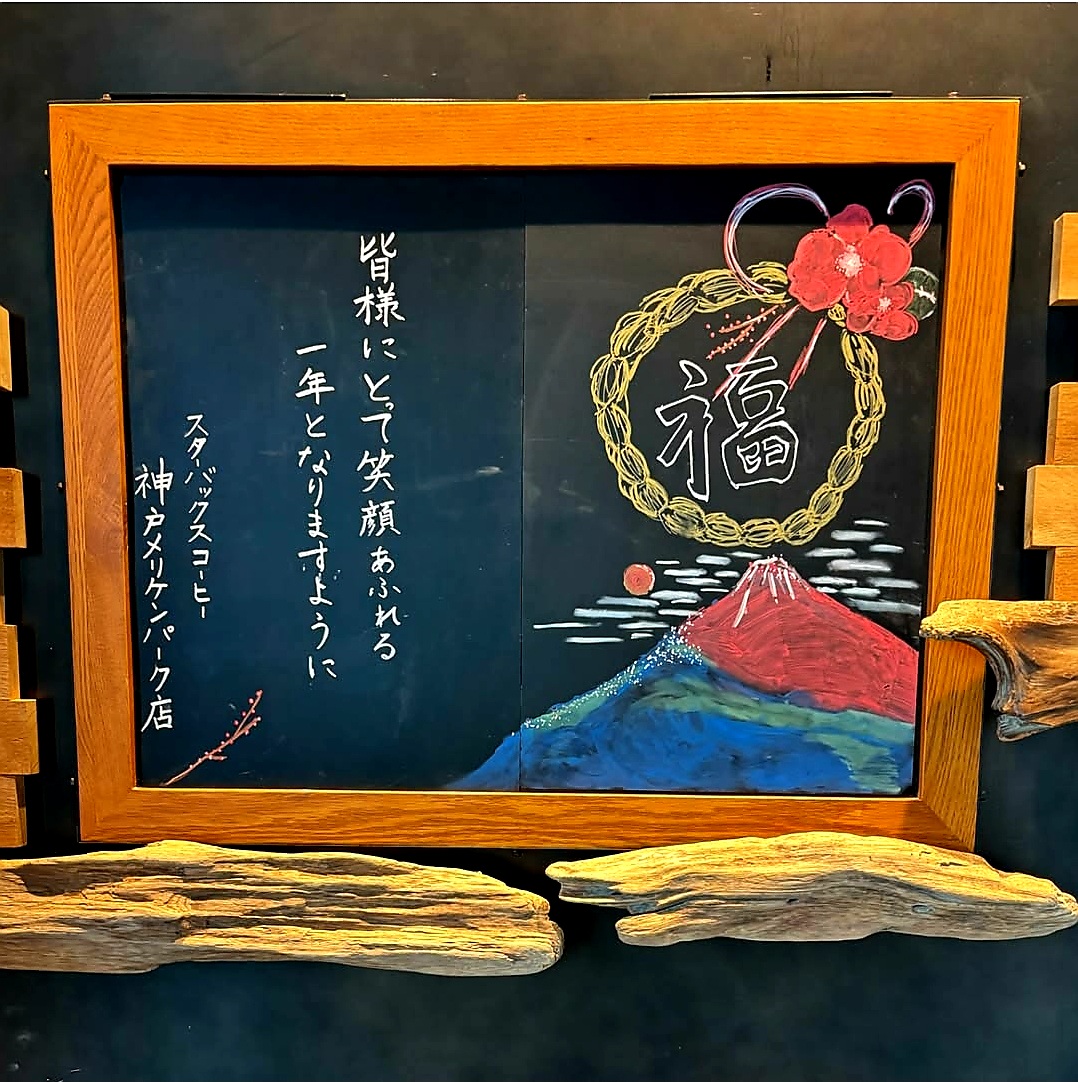 福
皆様にとって笑顔あふれる
一年となりますように
スターバックスコーヒー
神戸メリケンパーク店